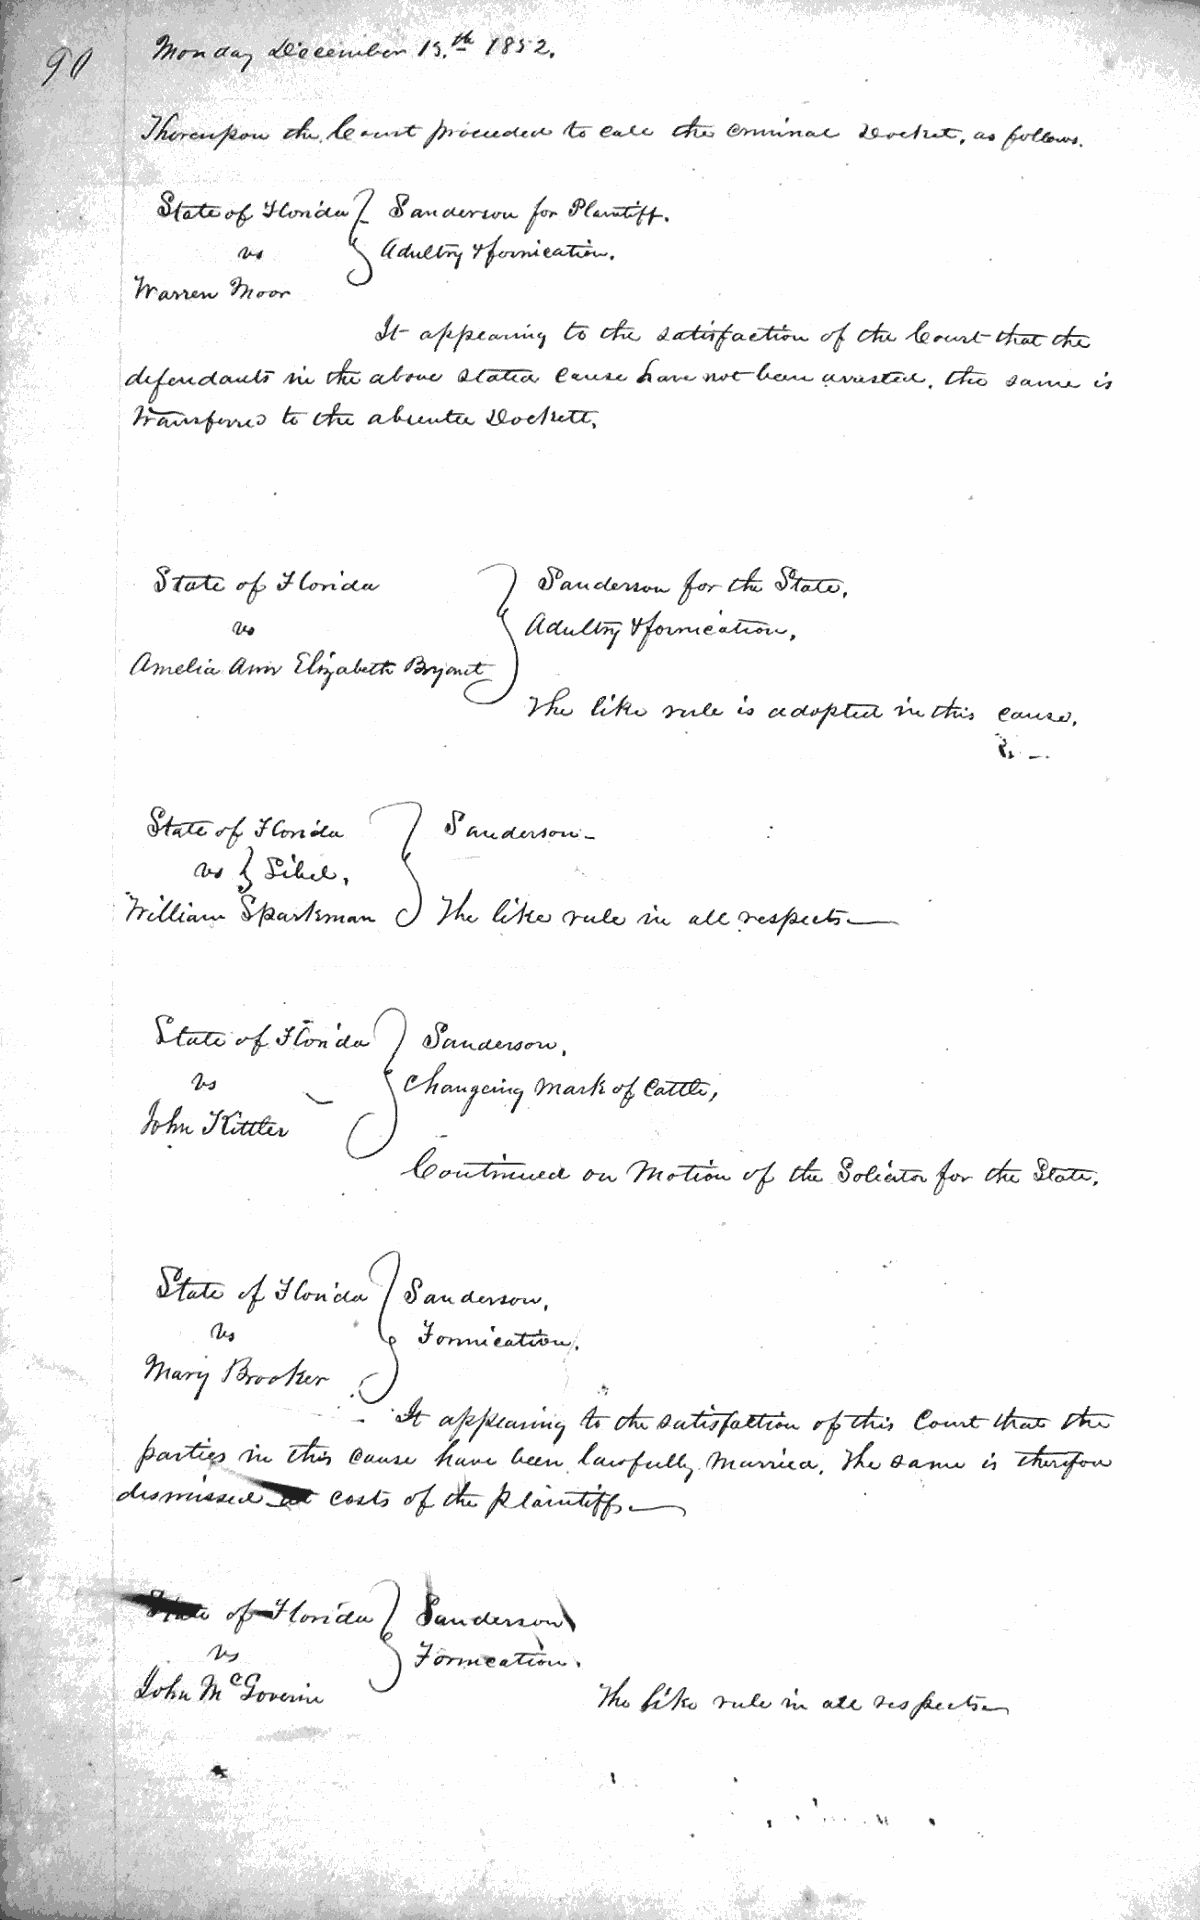 90
Monday December 13.th 1852.
Thereupon the Court proceeded to call the criminal Docket, as follows.
State of Florida } Sanderson for Plaintiff.
vs } Adultry & fornication.
Warren Moor
It appearing to the satisfaction of the Court that the
defendants in the above stated cause have not been arrested, the same is
transferred to the absentee Dockett.
State of Florida } Sanderson for the State,
vs } Adultry & fornication,
Amelia Ann Elizabeth Bryant
The like rule is adopted in this cause,
State of Florida } Sanderson -
vs } Libel,
William Sparkman } The like rule in all respects
State of Florida } Sanderson,
vs } Changeing Mark of Cattle,
John Kittler
Continued on Motion of the Solicitor for the State,
State of Florida } Sanderson,
vs } Fornication,
Mary Brooker
It appearing to the satisfaction of this Court that the
parties in this cause have been lawfully Married, The same is therefore
dismissed at costs of the plaintiffs
State of Florida } Sanderson
vs } Fornication.
John McGoverin
The like rule in all respects